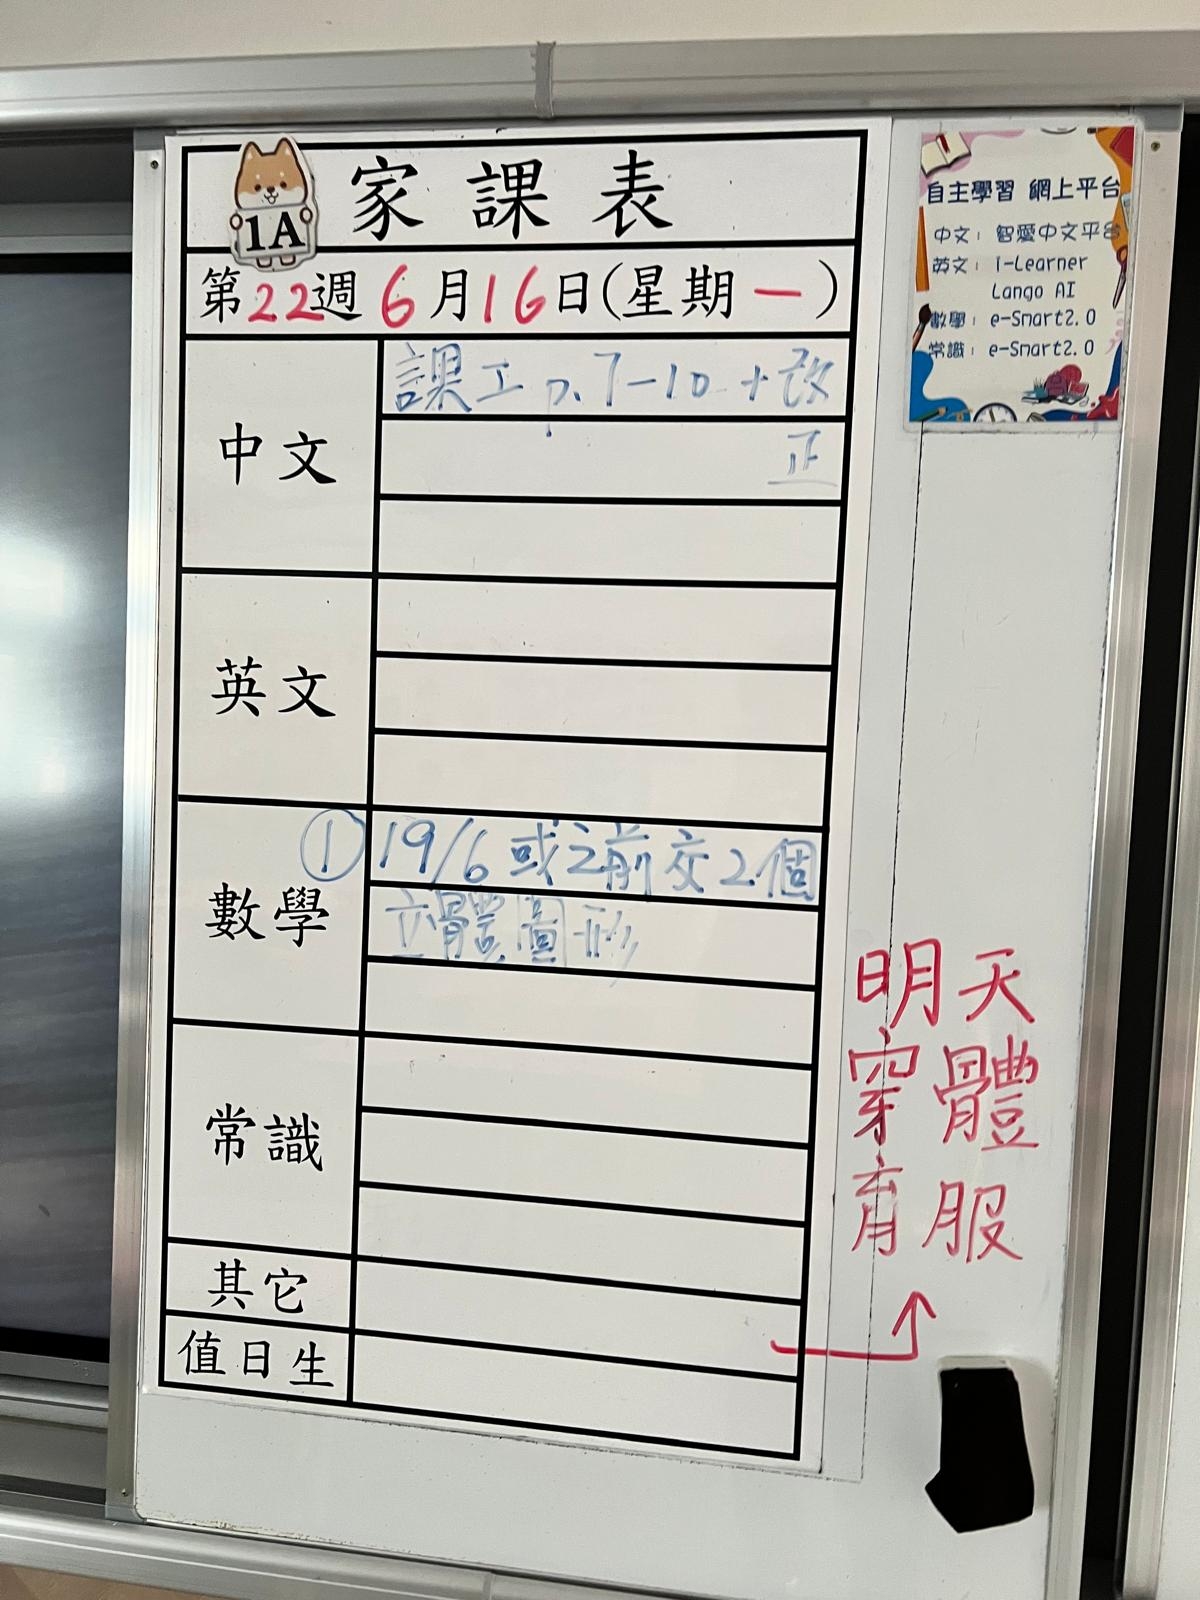 1A
家課表
第22週 6月16日(星期一)
中文
課工 p.7-10 + 改
正
英文
數學
① 19/6 或之前交2個
立體圖形
常識
其它
值日生
明天
穿體
育服
自主學習 網上平台
中文: 智愛中文平台
英文: i-Learner
Lango AI
數學: e-Smart2.0
常識: e-Smart2.0